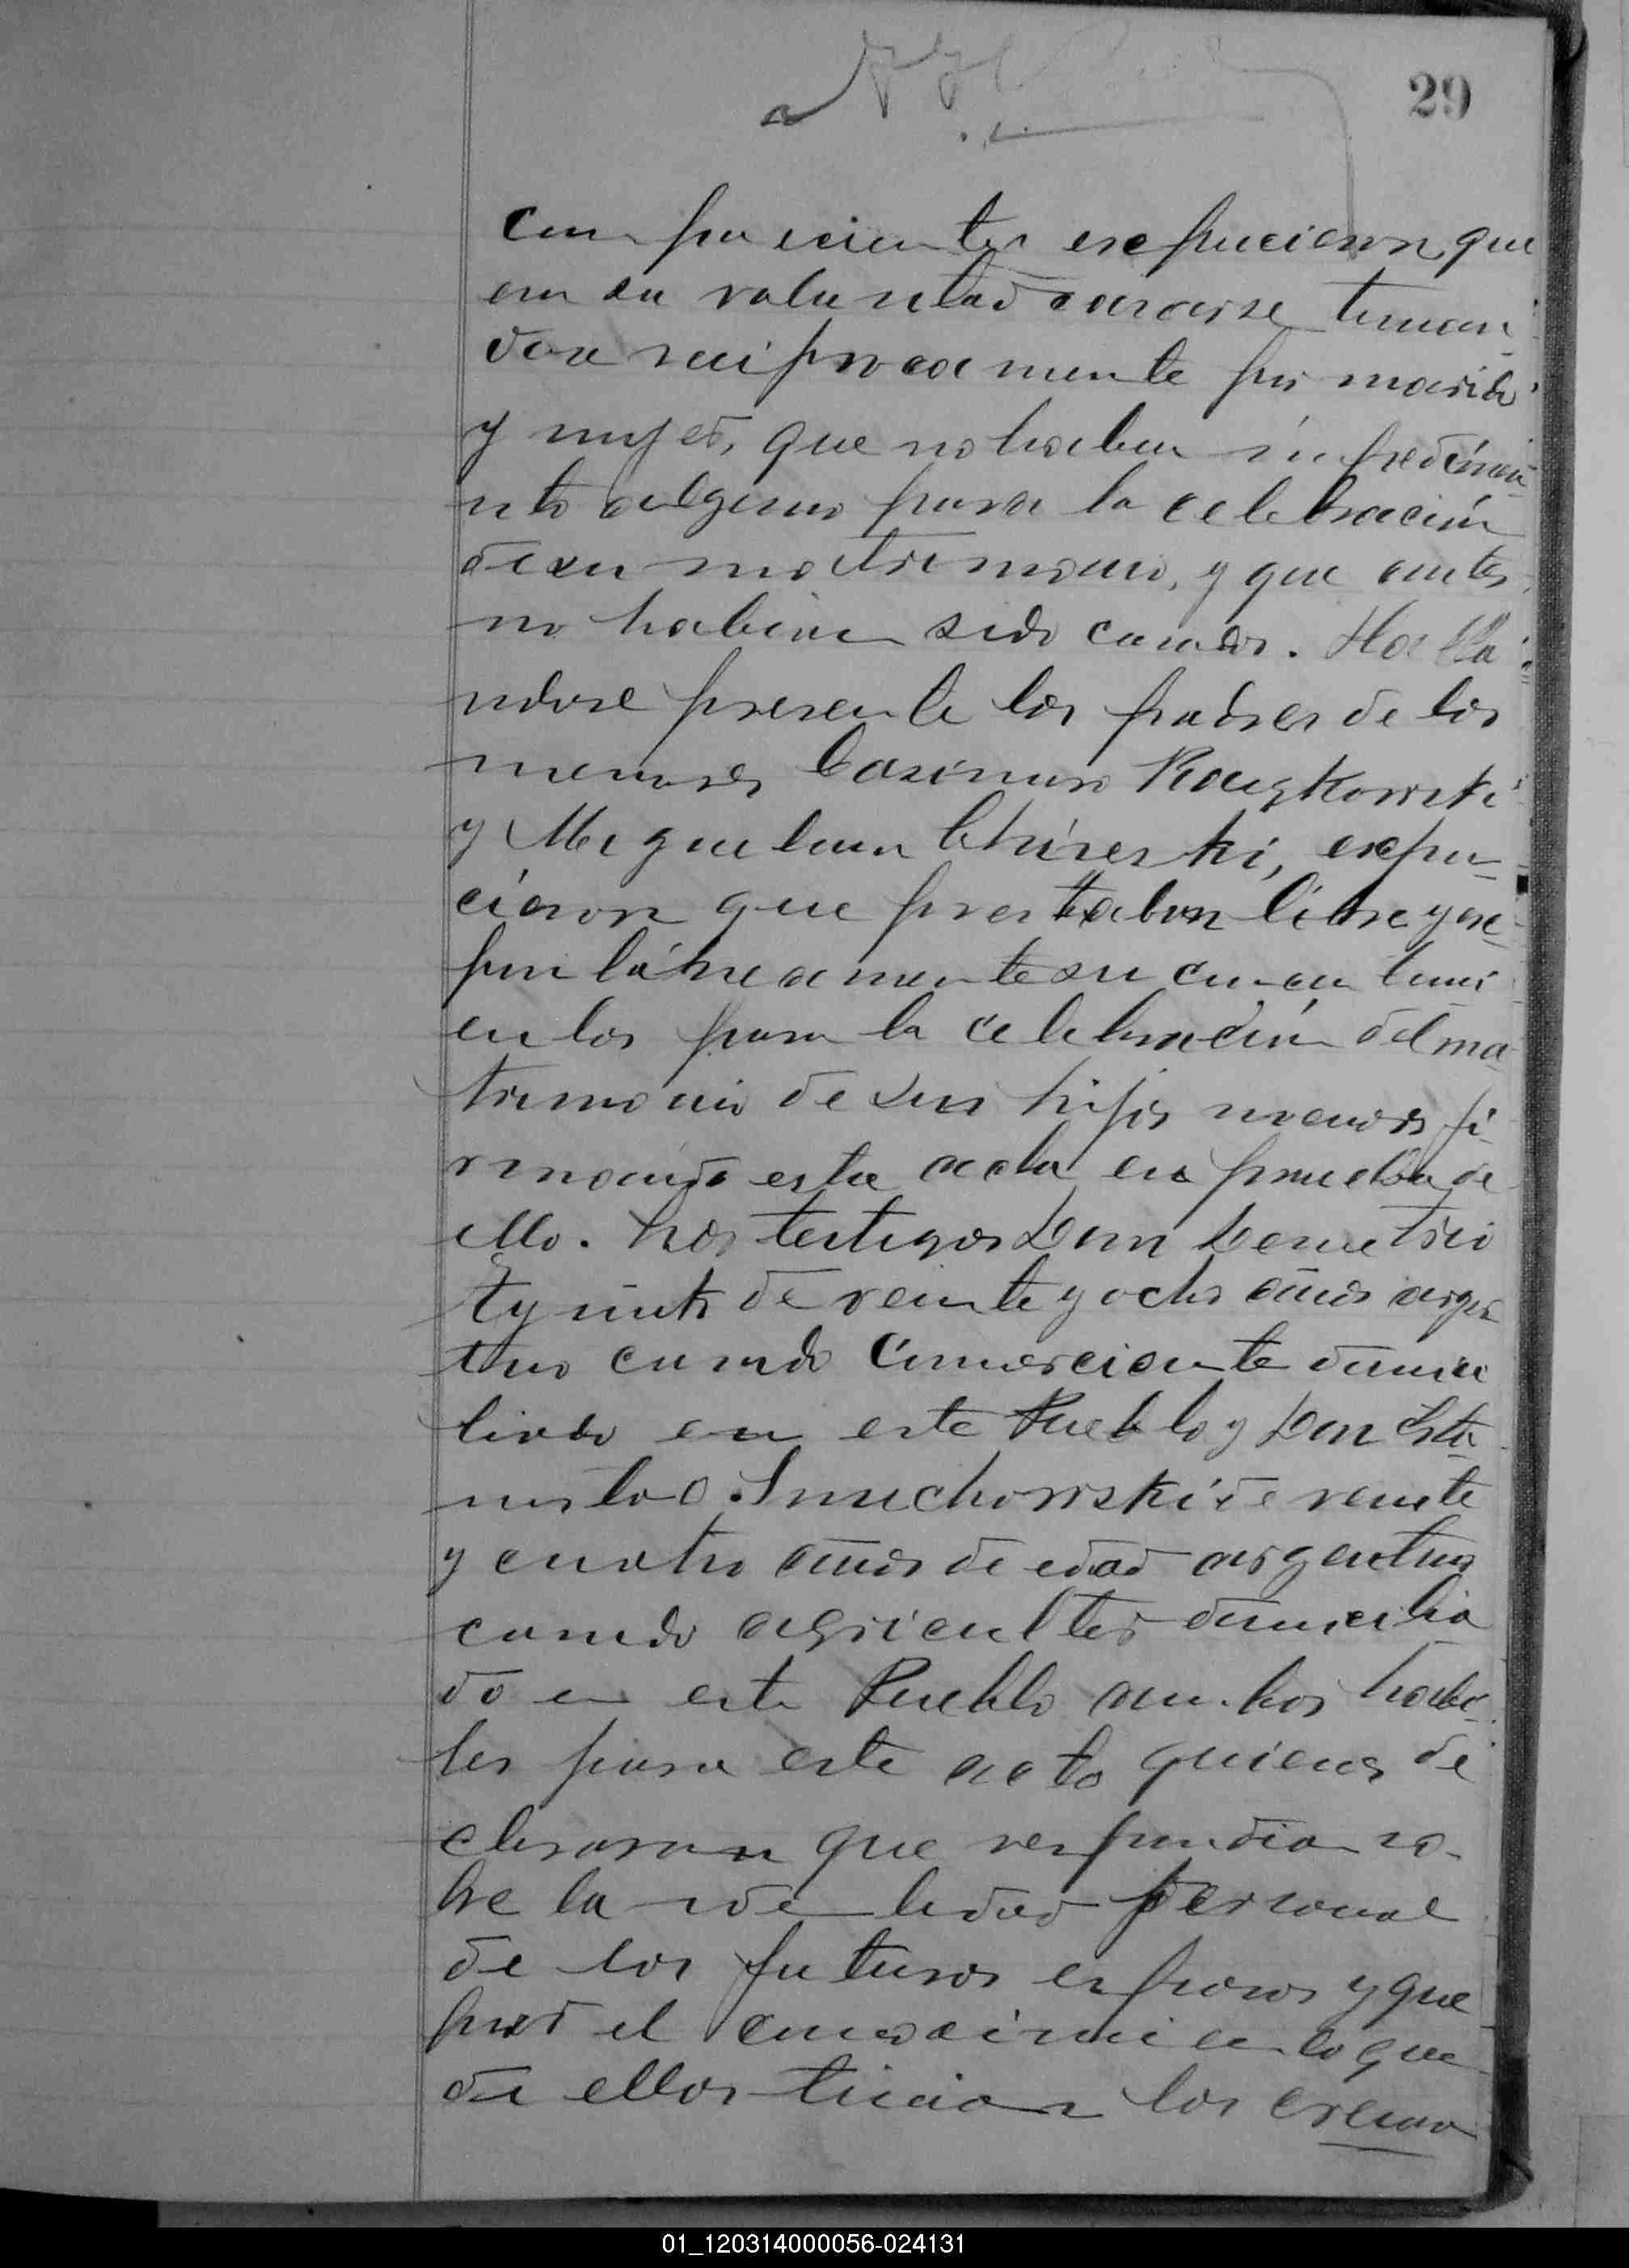 29
comparecientes expucieron que
era su voluntad casarse toman
dose reciprocamente por marido
y mujer, que no habia inpedimie
nto alguno para la celebración
desu matrimonio, y que antes
no habian sido casados. Halla
ndose presente los padres de los
menores Casimiro
y Miguel expu
cieron que prestaban libre y es
pontáneamente su consentimi
entos para la celebración del ma
trimonio de sus hijos menores fi
rmando esta acta en prueba de
ello. Los testigos Don Demetrio
de veinte y ocho años argen
tino casado comerciante domici
liado en este Pueblo y Don Esta
nislao Smuchowski de veinte
y cuatro años de edad argentino
casado agricultor domicilia
do en este Pueblo ambos habi
les para este acto quienes de
clararon que respondian so
bre la identidad personal
de los futuros esposos y que
por el conocimiento que
de ellos tienen los creian
01_120314000056-024131